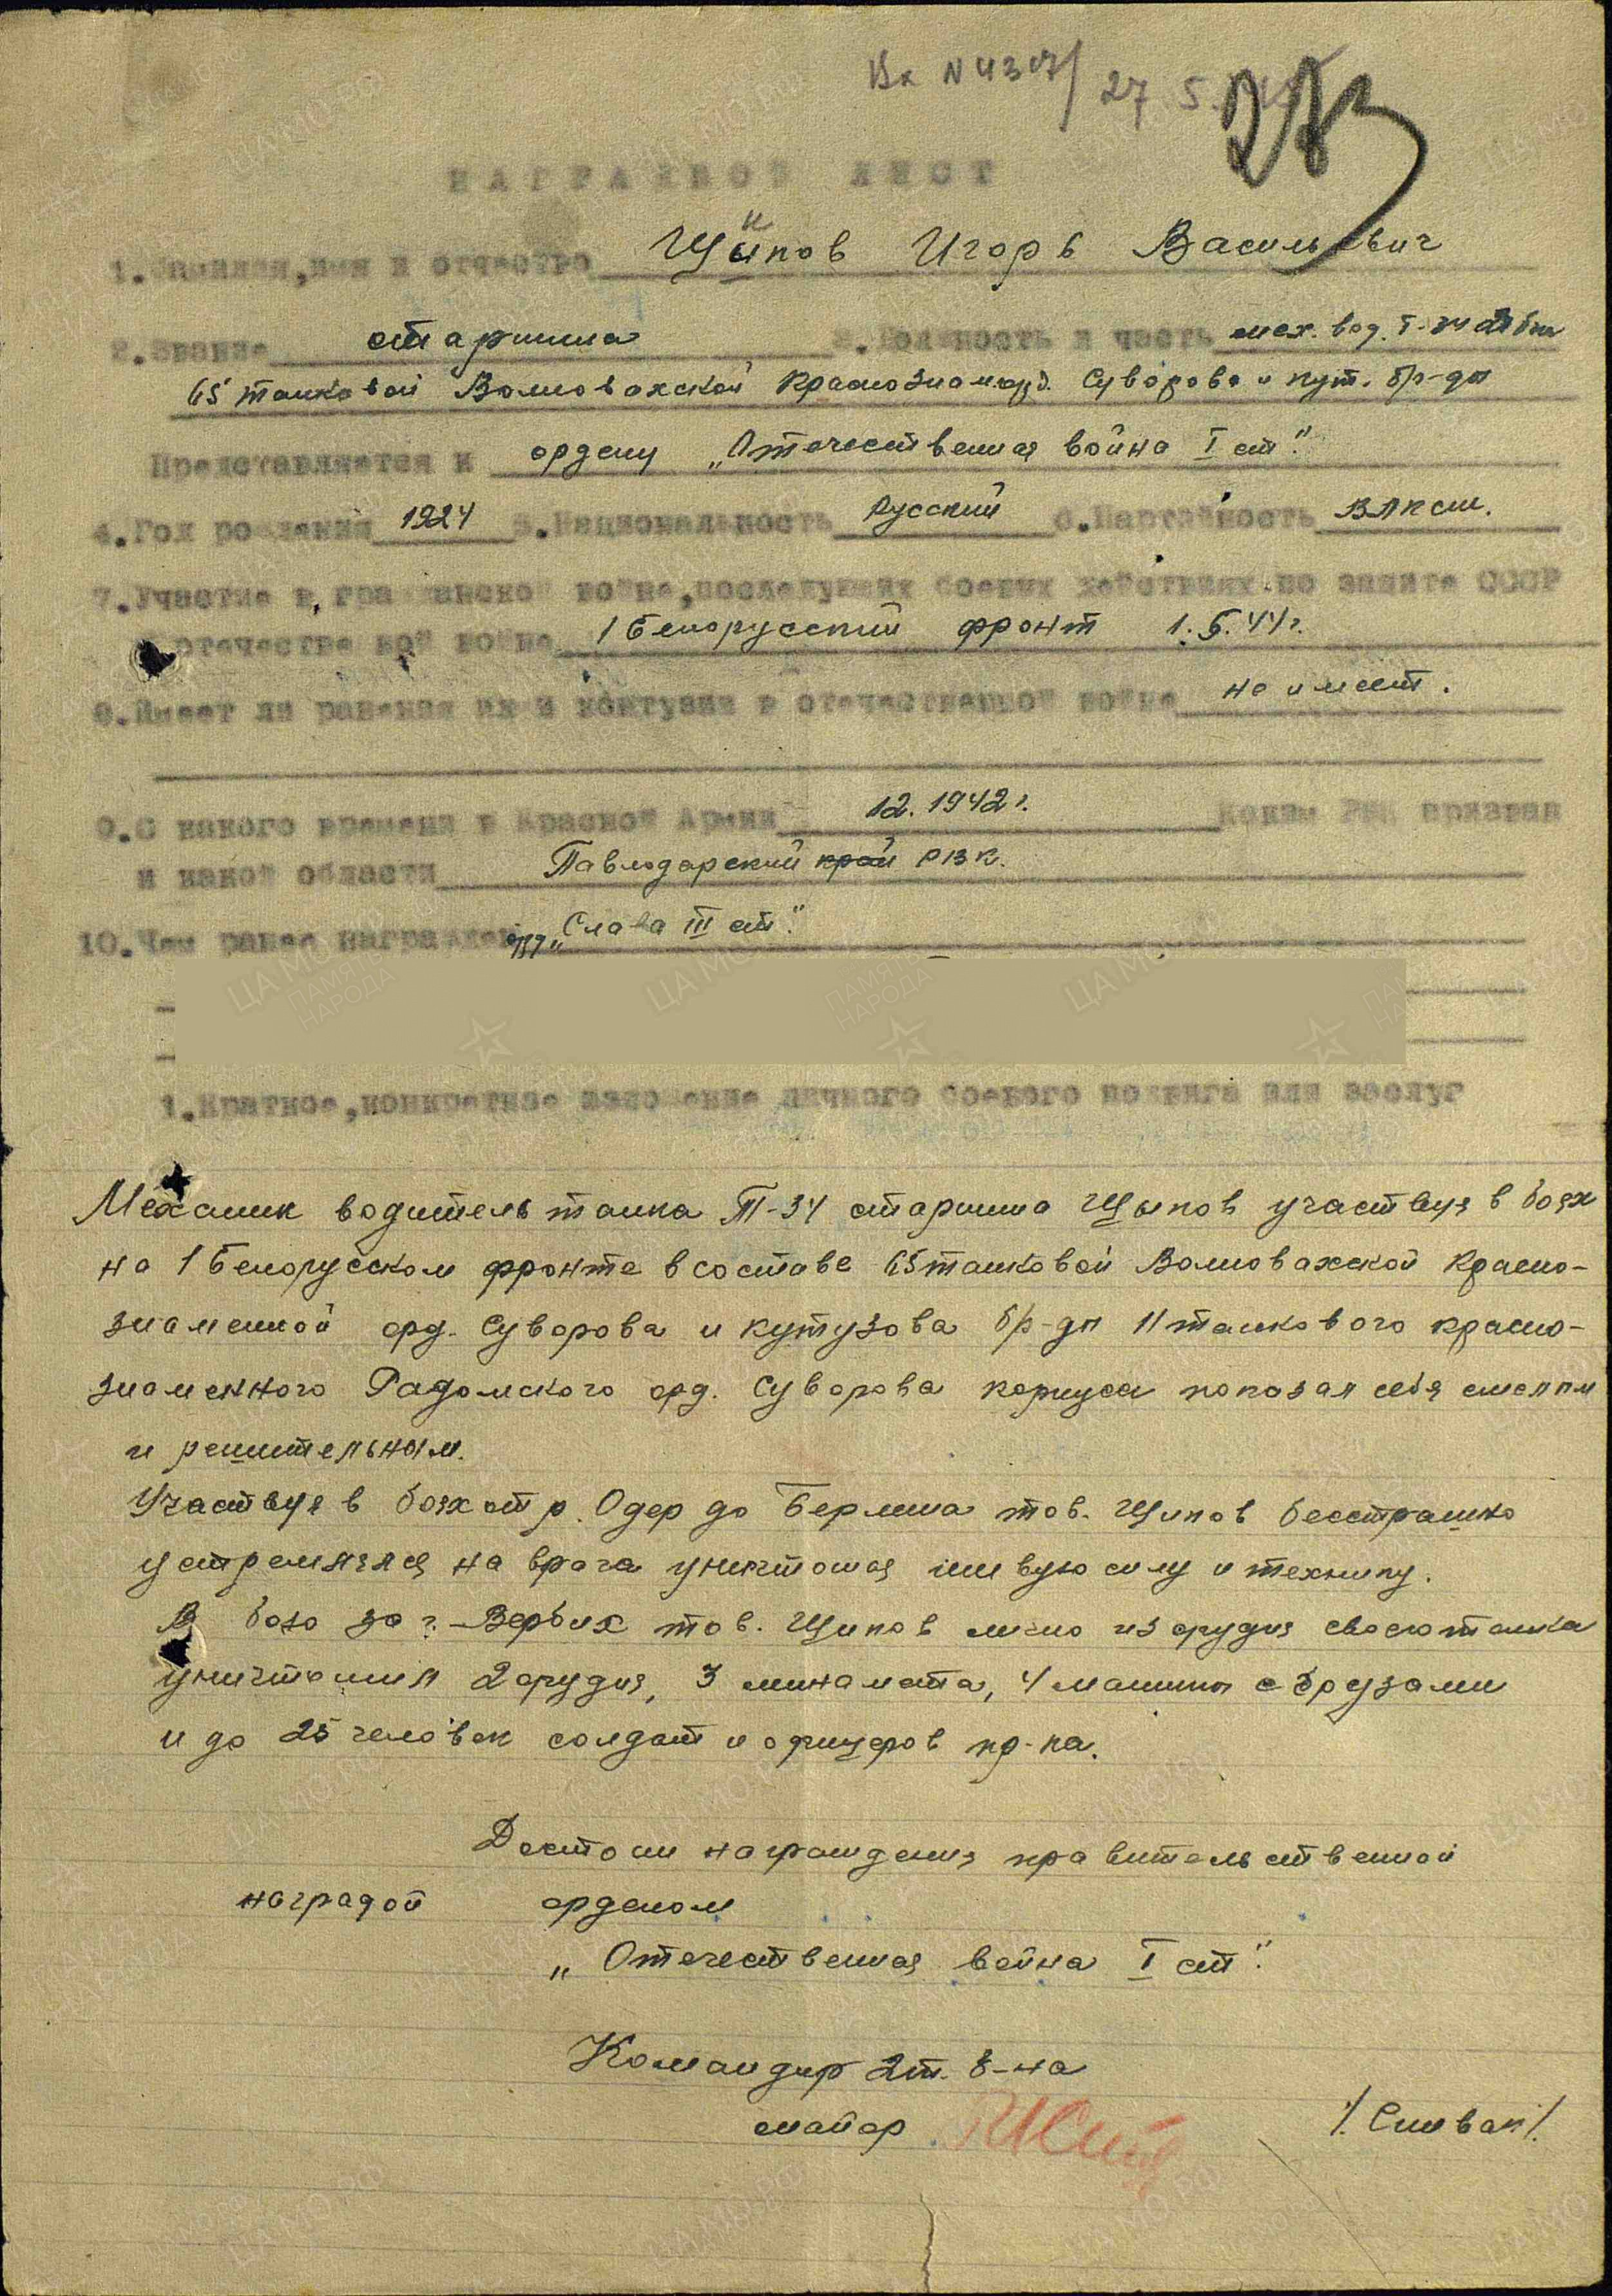 Вх N 4307/ 27.5.
283
НАГРАДНОЙ ЛИСТ
1.Фамилия,имя и отчество Щипов Игорь Васильевич
2.Звание старшина 3.Должность и часть мех. вод. Т-34 2 тбн
65 танковой Волновахской Краснознам орд. Суворова и кут. бр-ды
Представляется к ордену „Отечественная война I ст".
4.Год рождения 1924 5.Национальность Русский 6.Партийность ВЛКСМ.
7.Участие в гражданской войне,последующих боевых действиях по защите СССР
и отечественной войне 1 Белорусский фронт 1.5.44г.
8.Имеет ли ранения их и контузии в отечественной войне не имеет.
9.С какого времени в Красной Армии 12.1942г. Каким РВК призван
и какой области Павлодарский край РВК.
10.Чем ранее награжден орд „Слава III ст".
1.Краткое,конкретное изложение личного боевого подвига или заслуг
Механик водитель танка Т-34 старшина Щыпов участвуя в боях
на 1 Белорусском фронте в составе 65 танковой Волновахской Красно-
знаменной орд. Суворова и Кутузова бр-ды 11 танкового красно-
знаменного Радомского орд. Суворова корпуса показал себя смелым
и решительным.
Участвуя в боях от р. Одер до Берлина тов. Щипов бесстрашно
устремлялся на врага уничтожая живую силу и технику.
В бою за г. Вербих тов. Щипов лично из орудия своего танка
уничтожил 2 орудия, 3 минамета, 4 машины с грузами
и до 25 человек солдат и офицеров пр-ка.
Достоин награждения правительственной
наградой орденом
„Отечественная война I ст".
Командир 2 т. б-на
майор /. Сливак /.
ЦАМО.РФ
ПАМЯТЬ НАРОДА